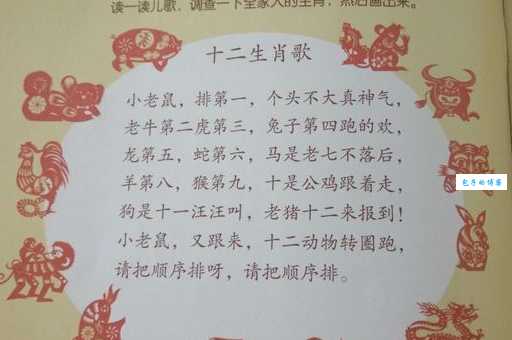 读一读儿歌，调查一下全家人的生肖，然后画出来。
十二生肖歌
小老鼠，排第一，个头不大真神气，
老牛第二虎第三，兔子第四跑的欢，
龙第五，蛇第六，马是老七不落后，
羊第八，猴第九，十是公鸡跟着走，
狗是十一汪汪叫，老猪十二来报到！
小老鼠，又跟来，十二动物转圈跑，
请把顺序排呀，请把顺序排。